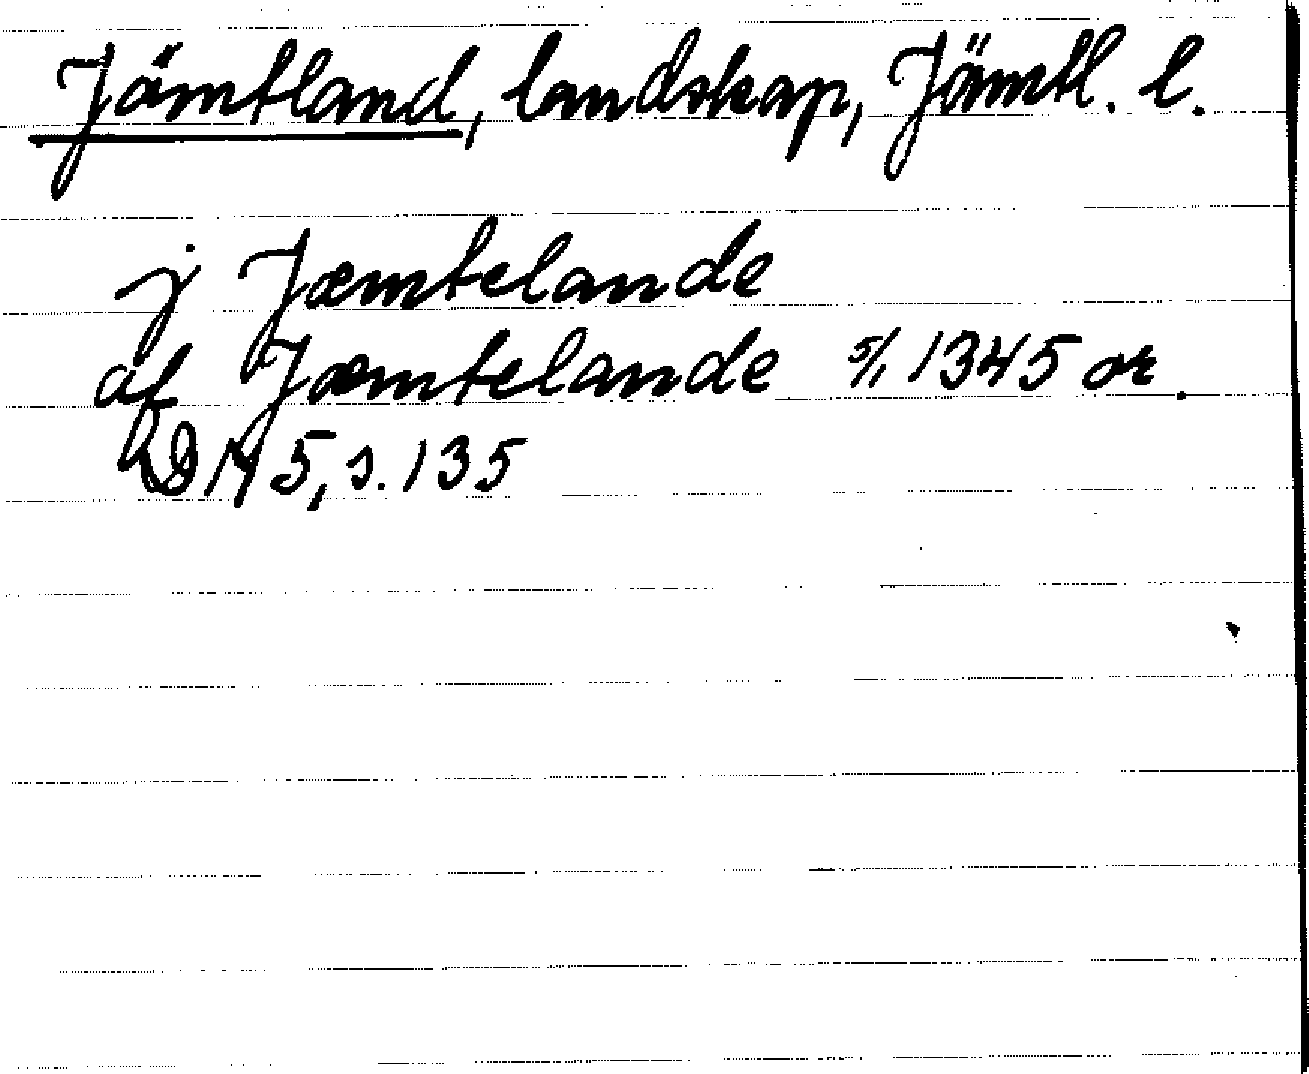 Jämtland, landskap, Jämtl. l.
j Jæmtelande
af Jæmtelande 5/1 1345 or.
DN 5, s. 135